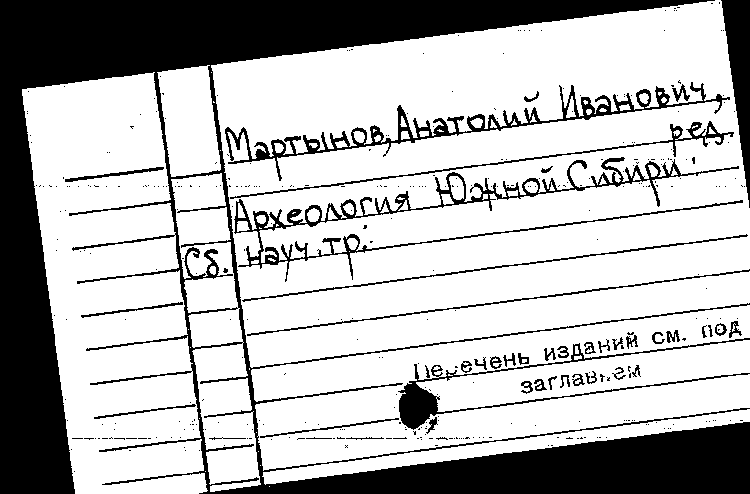 Мартынов, Анатолий Иванович,
ред.
Археология Южной Сибири:
Сб. науч. тр.
Перечень изданий см. под
заглавием